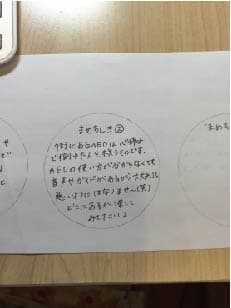 まめちしき②
街にあるAEDは心停止
で倒れた人を救うものです。
AEDの使い方が分からなくても
音声ガイドがあるから大丈夫!!
悪いようにはなりません(笑)
どこにあるか探して
みてください♪
まめち